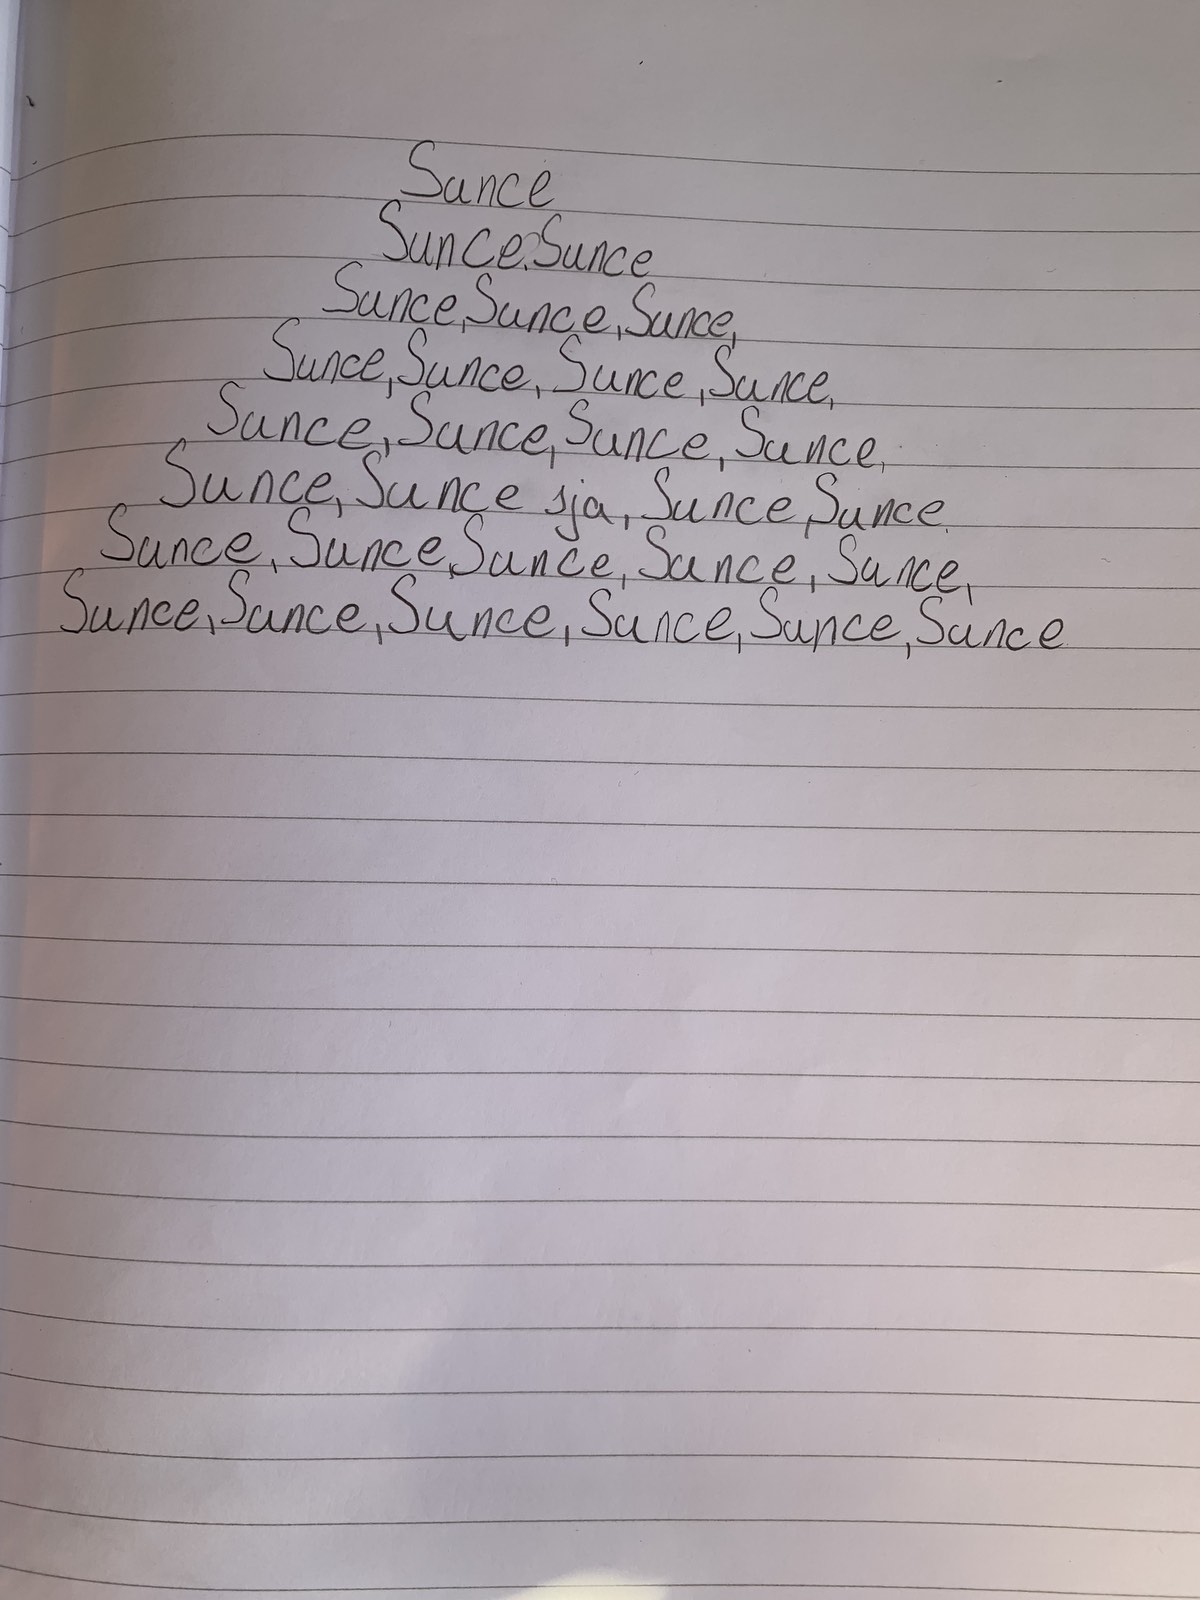 Sunce
Sunce,Sunce
Sunce,Sunce,Sunce,
Sunce,Sunce, Sunce,Sunce,
Sunce,Sunce,Sunce,Sunce,
Sunce,Sunce sja, Sunce,Sunce,
Sunce,Sunce,Sunce,Sunce,Sunce,
Sunce,Sunce,Sunce,Sunce,Sunce,Sunce